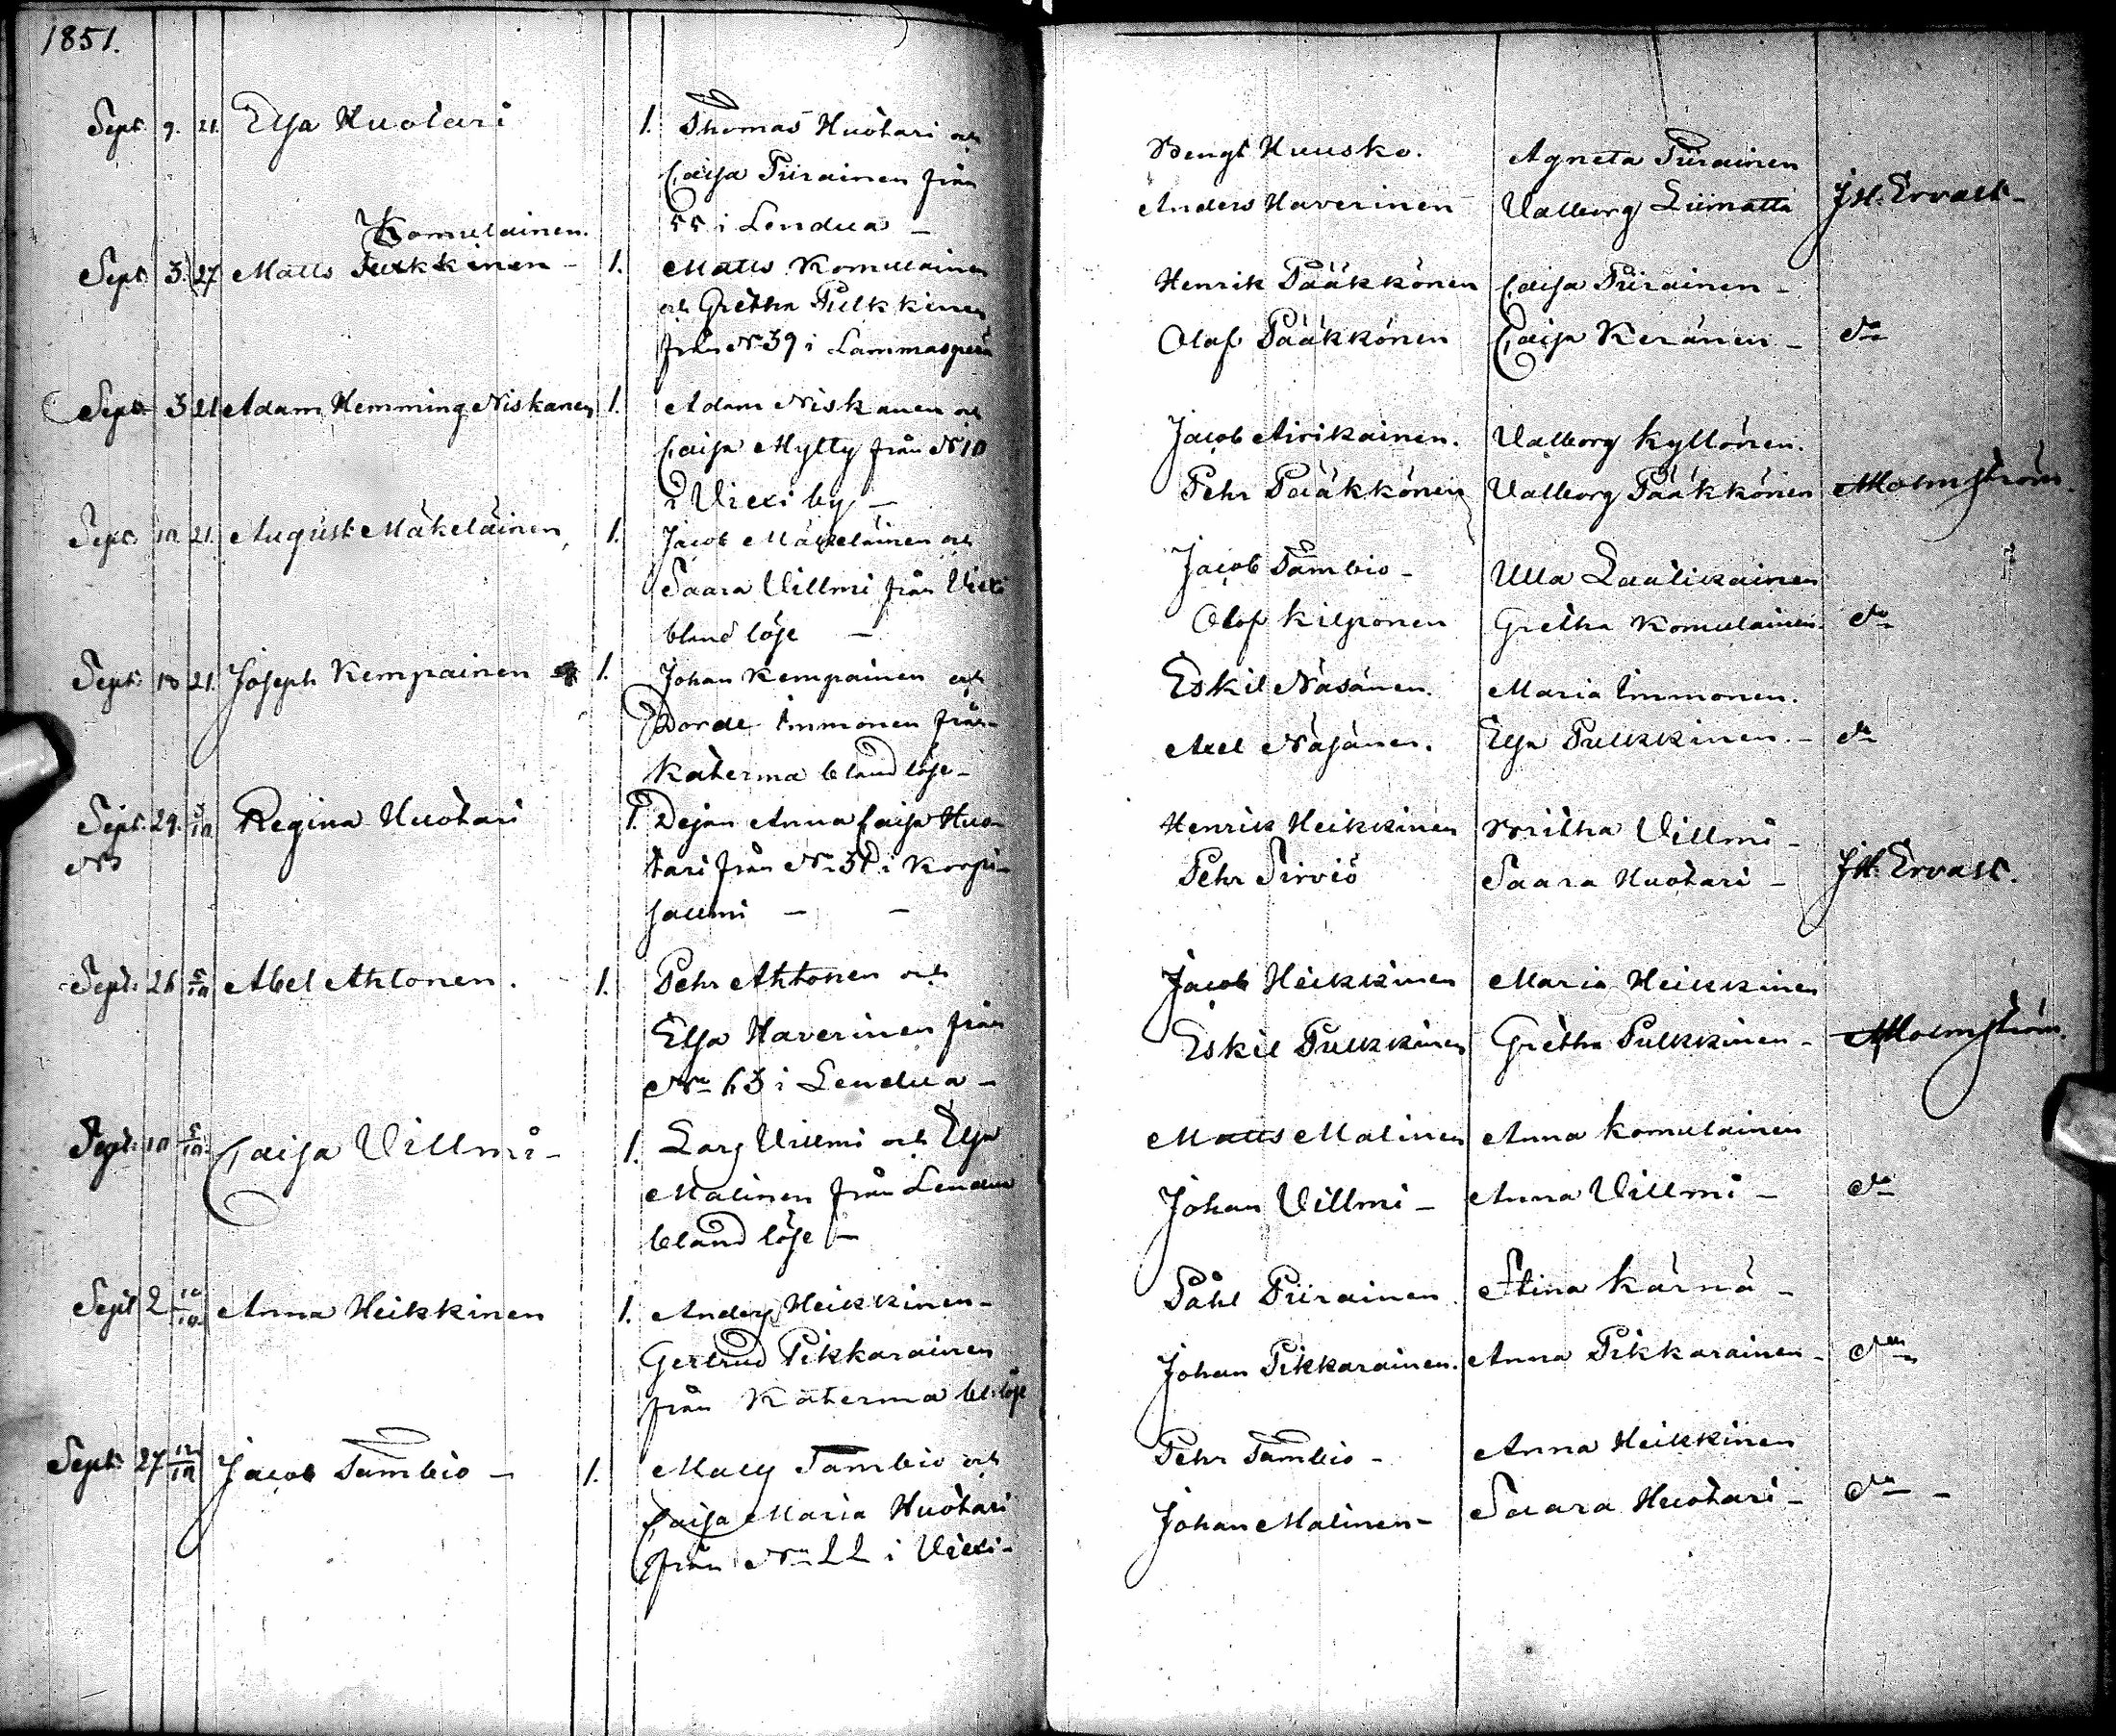 1851.
Sept. 9. 21. Elsa Huotari 1. Thomas Huotari och
Caisa Piirainen från
55 i Lendua –
Bengt Huusko. Agneta Piirainen
Anders Haverinen Valborg Liimatta J H. Ervast –
Komulainen.
Sept. 3. 27 Matts Pulkkinen – 1. Matts Komulainen
och Gretha Pulkkinen
från No 39 i Lammasperä
Henrik Pääkkönen Caisa Piirainen –
Olof Pääkkönen Caisa Keränen – do
Sept. 3 21 Adam Hemming Niskanen 1. Adam Niskanen och
Caisa Mylly från No 10
i Viexi by –
Jacob Airikainen. Valborg Kyllönen.
Pehr Pääkkönen Valborg Pääkkönen Malmström
Sept. 10 21. August Mäkeläinen, 1. Jacob Mäkeläinen och
Saara Villmi från Viexi
bland löse –
Jacob Tambio – Ulla Laatikainen
Olof Kilponen Gretha Komulainen. do
Sept. 18 21. Joseph Kempainen 1. Johan Kempainen och
Dorde Immonen från
Katerma bland löse –
Eskil Näsänen. Maria Immonen.
Axel Näsänen. Elsa Pulkkinen. – do
Sept. 29. 5/10 Regina Huotari 1. Dejan Anna Caisa Huo-
tari från No 31 i Korpi-
salmi – –
No
Henrik Heikkinen Britha Villmi –
Pehr Sirviö Saara Huotari – J H. Ervast.
Sept. 26 5/10 Abel Ahtonen. 1. Pehr Ahtonen och
Elsa Haverinen från
No 63 i Lendua –
Jacob Heikkinen Maria Heikkinen
Eskil Pulkkinen Gretha Pulkkinen – Malmström.
Sept. 10 5/10. Caisa Villmi – 1. Lars Villmi och Elsa
Malinen från Lendua
bland löse –
Matts Malinen Anna Komulainen
Johan Villmi – Anna Villmi – do
Sept 2 12/10 Anna Heikkinen 1. Anders Heikkinen –
Gertrud Pikkarainen
från Katerma bl. löse
Påhl Piirainen. Stina Kärnä –
Johan Pikkarainen. Anna Pikkarainen – do
Sept. 27 12/10 Jacob Tambio – 1. Mats Tambio och
Caisa Maria Huotari
från No 22 i Viexi –
Pehr Tambio – Anna Heikkinen
Johan Malinen – Saara Huotari – do –